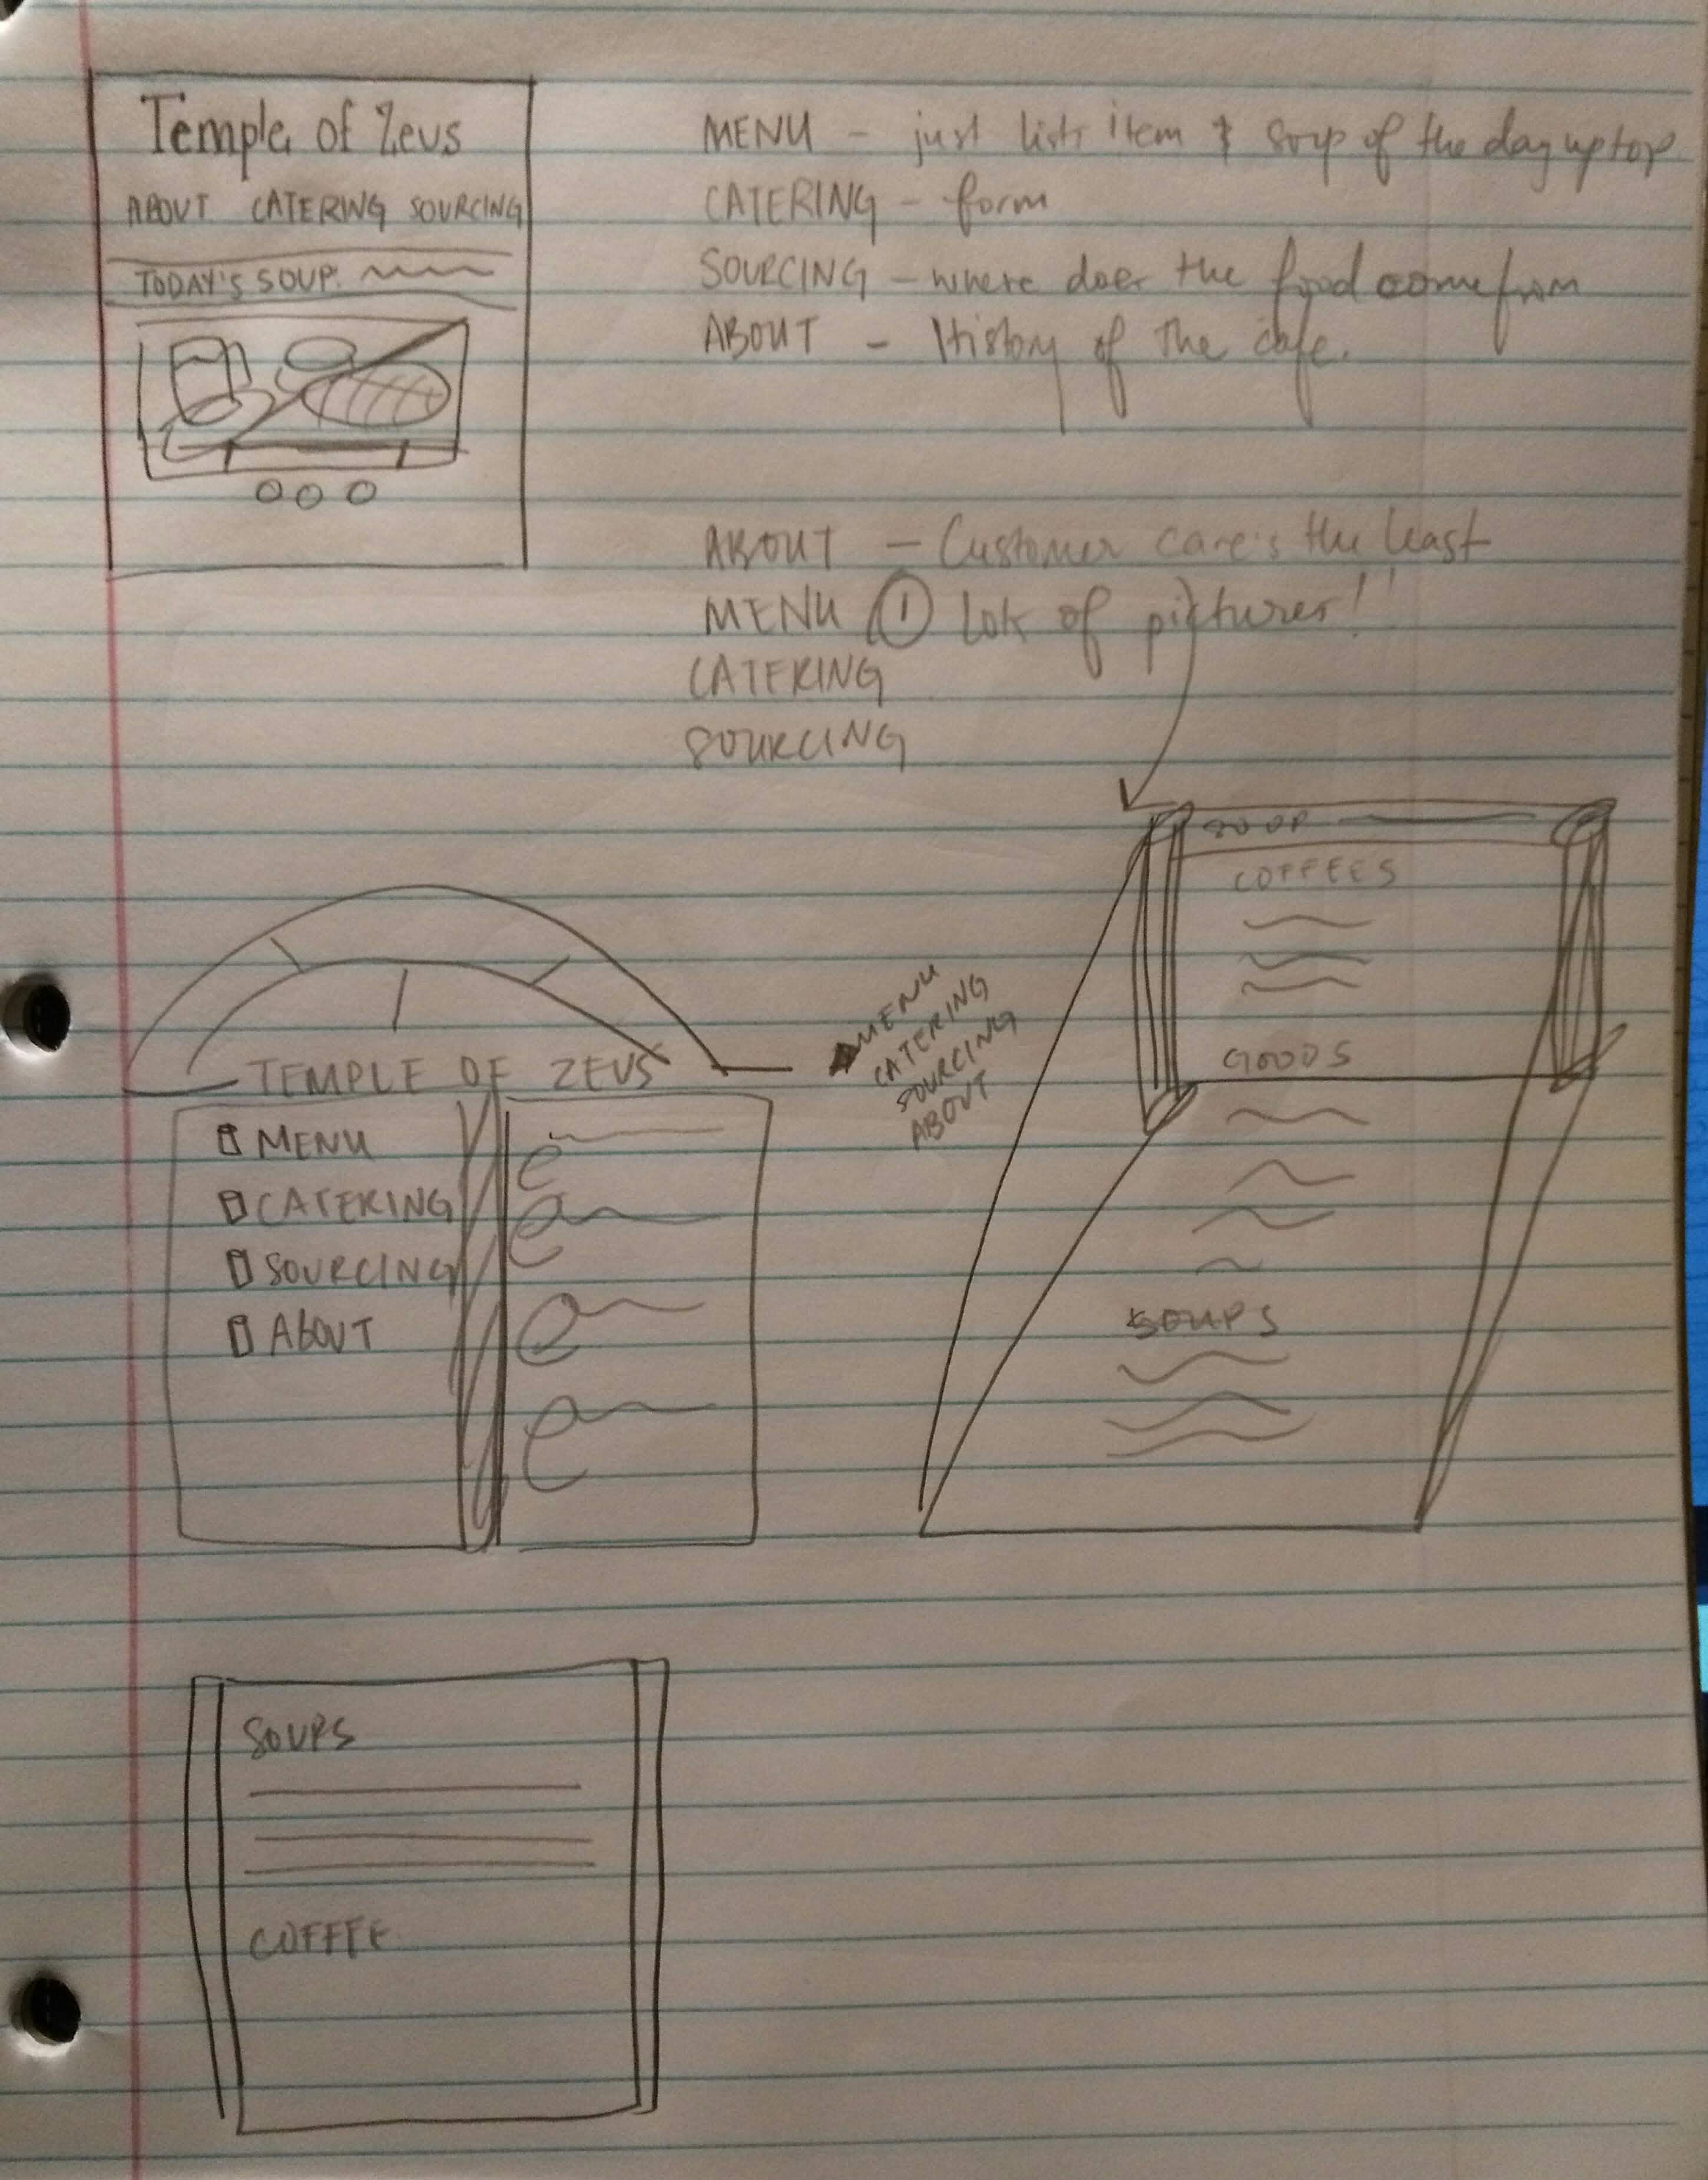 Temple of Zeus
ABOUT CATERING SOURCING
TODAY'S SOUP:
MENU - just list item & soup of the day up top
CATERING - form
SOURCING - where does the food come from
ABOUT - History of the cafe.
ABOUT - Customer care's the least
MENU 1 Lots of pictures!!
CATERING
SOURCING
SOUP
COFFEES
GOODS
SOUPS
MENU
CATERING
SOURCING
ABOUT
TEMPLE OF ZEUS
MENU
CATERING
SOURCING
ABOUT
SOUPS
COFFEE